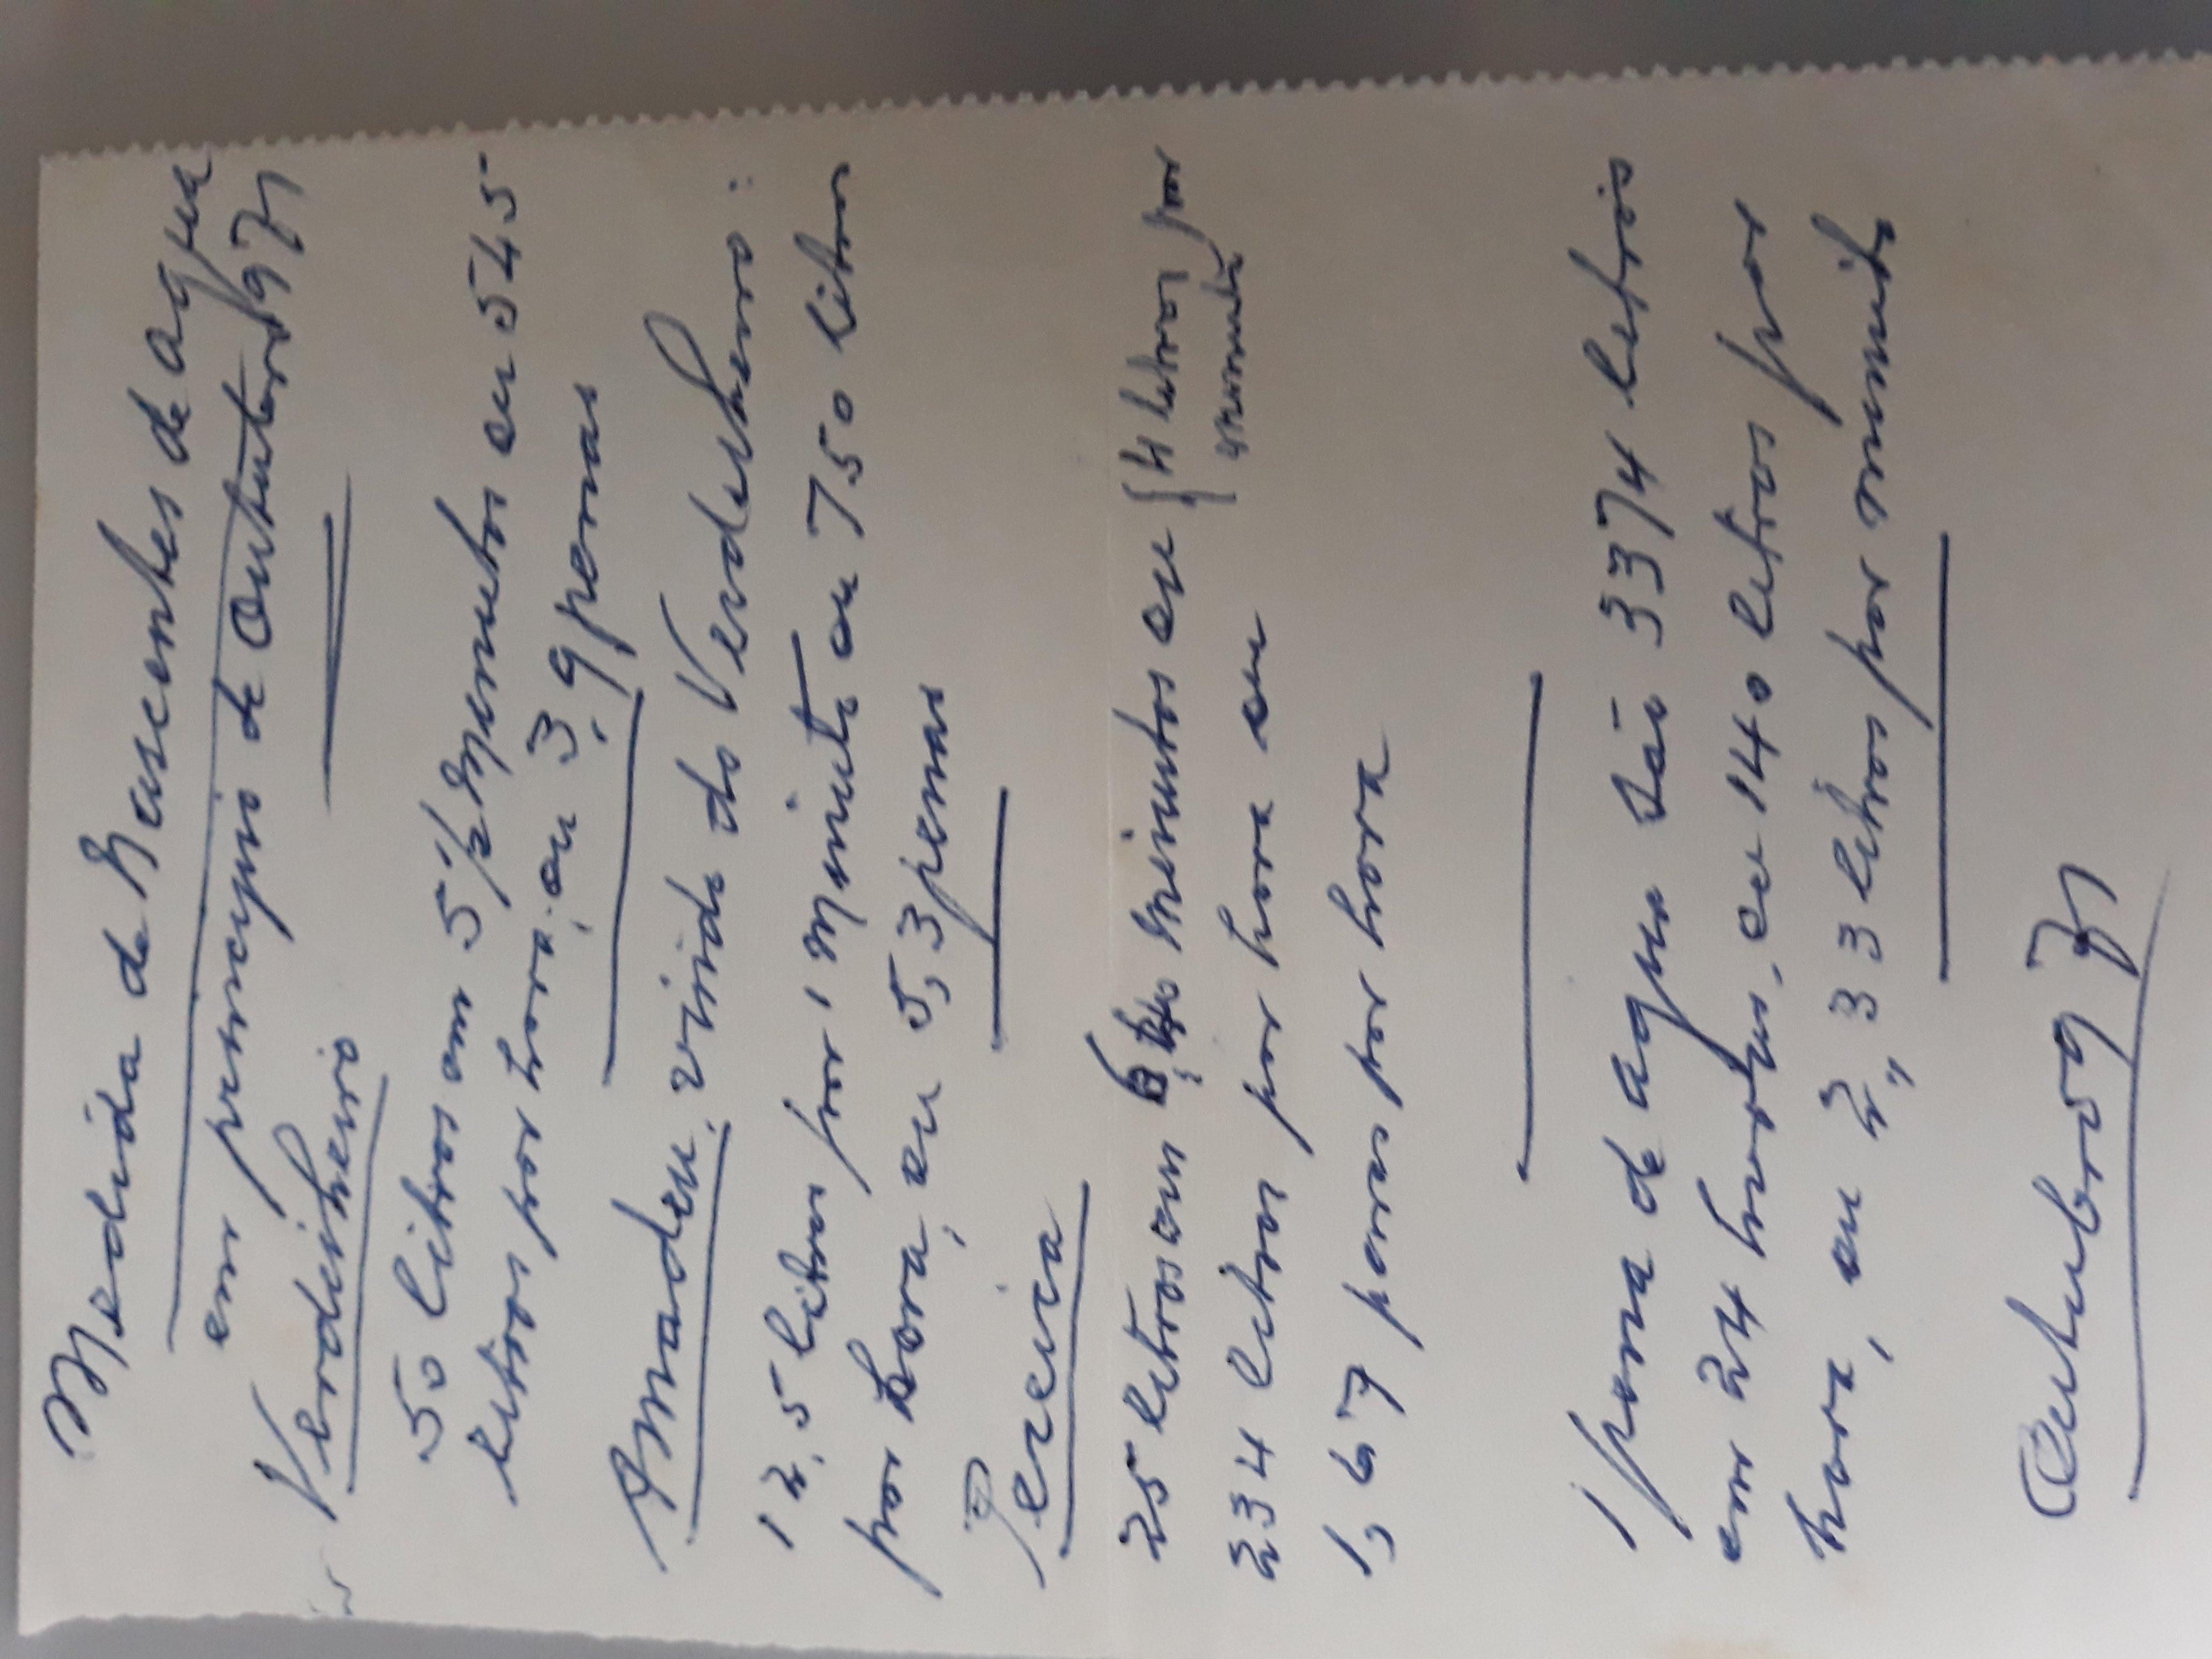 Medida de Nascentes de agua
em principio de Outubro 971
Verdinheiro
50 litros em 5 1/2 Minutos ou 545
litros por hora, ou 3,9 penas
Amadeu, vindo do Verdinheiro:
12,5 litros por 1 minuto ou 750 litros
por hora, ou 5,3 penas
Pereira
25 litros em minutos ou { 4 litros por
minuto
234 litros por hora ou
1,67 penas por hora
1 pena de agua são 3374 litros
em 24 horas, ou 140 litros por
hora, ou 2,,33 litros por minuto
Outubro 971